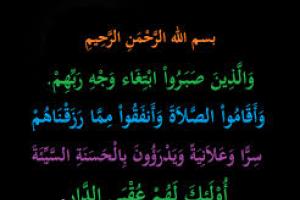 بسم الله الرَّحْمَنِ الرَّحِيمِ
وَالَّذِينَ صَبَرُواْ ابْتِغَاء وَجْهِ رَبِّهِمْ.
وَأَقَامُواْ الصَّلاَةَ وَأَنفَقُواْ مِمَّا رَزَقْنَاهُمْ
سِرًّا وَعَلاَنِيَةً وَيَدْرَؤُونَ بِالْحَسَنَةِ السَّيِّئَةَ
أُوْلَئِكَ لَهُمْ عُقْبَى الدَّارِ.